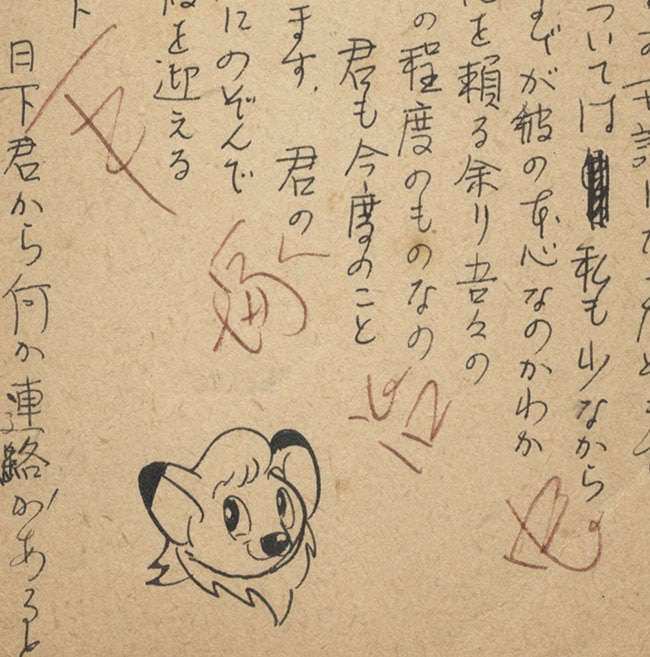 ついては私も少なから
までが彼の本心なのかわか
を頼る余り吾々の
の程度のものなの
君も今度のこと
ます。君の
にのぞんで
を迎える
日下君から何か連絡があると